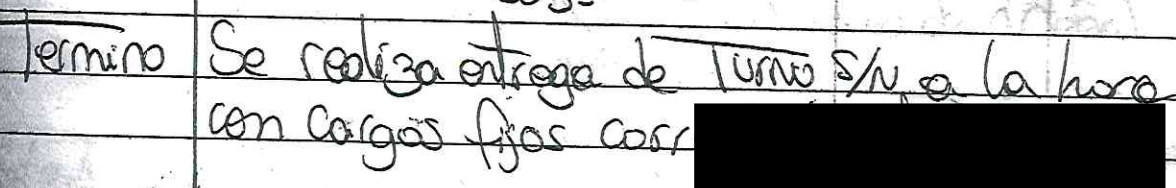 Termino Se realiza entrega de Turno S/N, a la hora
con Cargos fijos corr